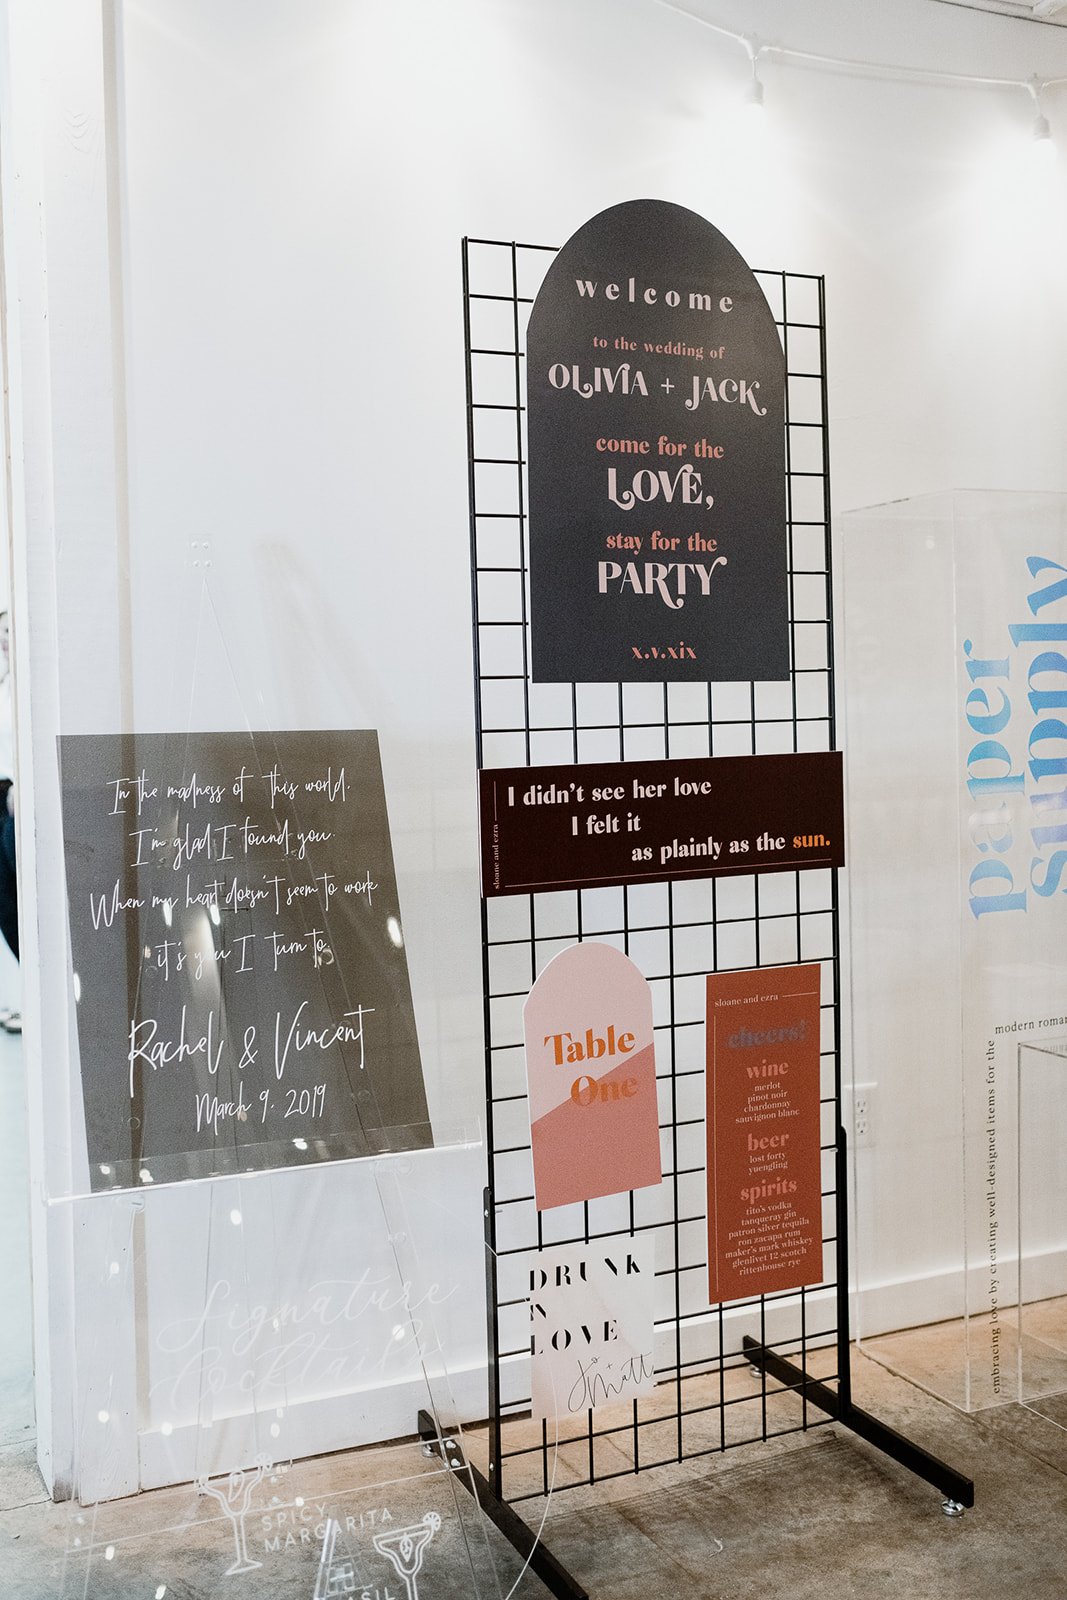 welcome
to the wedding of
OLIVIA + JACK
come for the
LOVE,
stay for the
PARTY
x.v.xix
I didn't see her love
I felt it
as plainly as the sun.
sloane and ezra
In the madness of this world.
I'm glad I found you.
When my heart doesn't seem to work
it's you I turn to.
Rachel & Vincent
March 9. 2019
Table
One
sloane and ezra
cheers!
wine
merlot
pinot noir
chardonnay
sauvignon blanc
beer
lost forty
yuengling
spirits
tito's vodka
tanqueray gin
patron silver tequila
ron zacapa rum
maker's mark whiskey
glenlivet 12 scotch
rittenhouse rye
DRUNK
IN
LOVE
Jo
+
Matt
Signature
Cocktails
SPICY
MARGARITA
paper
supply
modern roman
embracing love by creating well-designed items for the